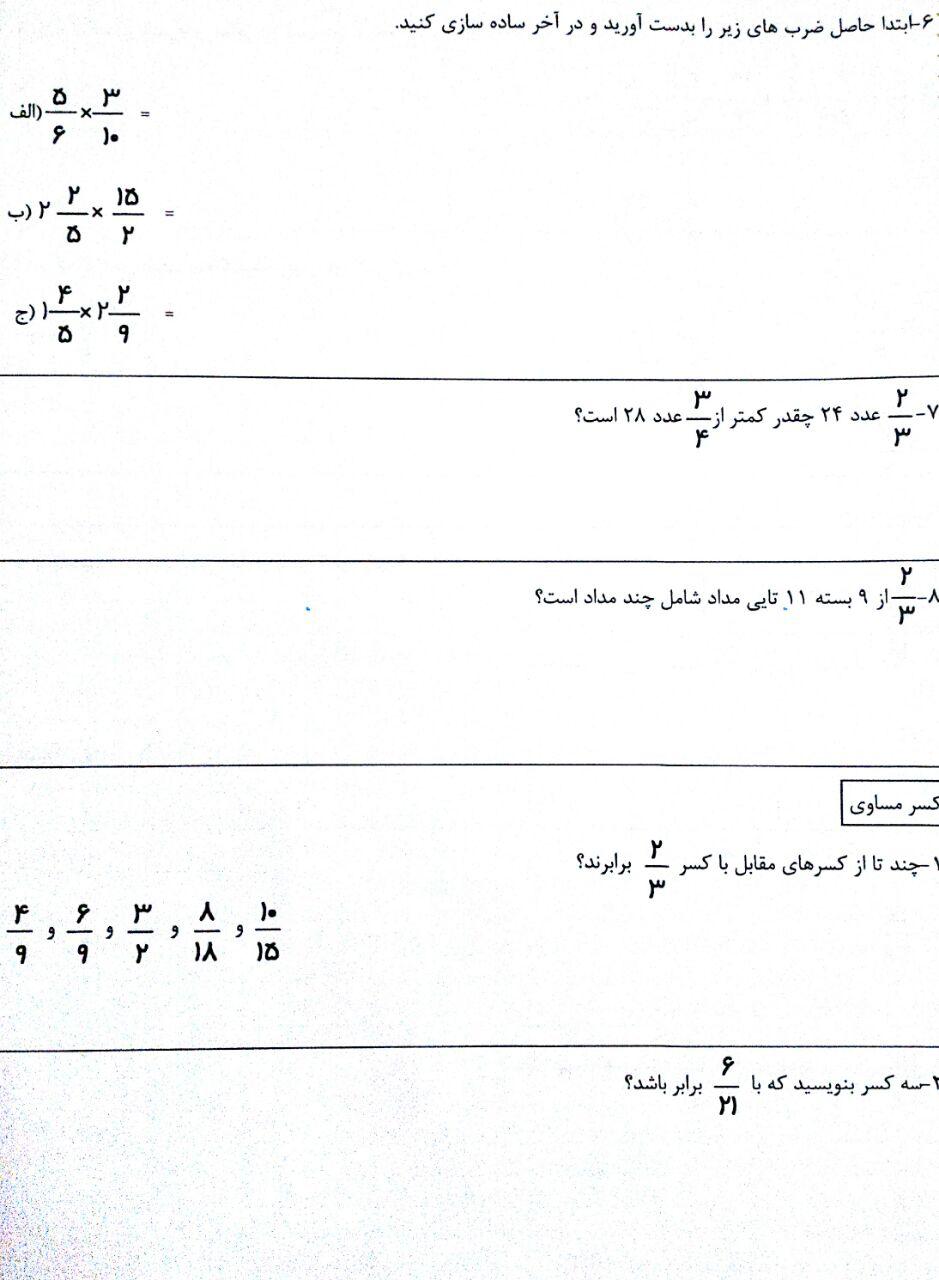 ۶-ابتدا حاصل ضرب های زیر را بدست آورید و در آخر ساده سازی کنید.
الف) ۵/۶ × ۳/۱۰ =
ب) ۲ ۲/۵ × ۱۵/۲ =
ج) ۱ ۴/۵ × ۲ ۲/۹ =
۷- ۲/۳ عدد ۲۴ چقدر کمتر از ۳/۴ عدد ۲۸ است؟
۸- ۲/۳ از ۹ بسته ۱۱ تایی مداد شامل چند مداد است؟
کسر مساوی
۱-چند تا از کسرهای مقابل با کسر ۲/۳ برابرند؟
۴/۹ و ۶/۹ و ۳/۲ و ۸/۱۸ و ۱۰/۱۵
۲-سه کسر بنویسید که با ۶/۲۱ برابر باشد؟